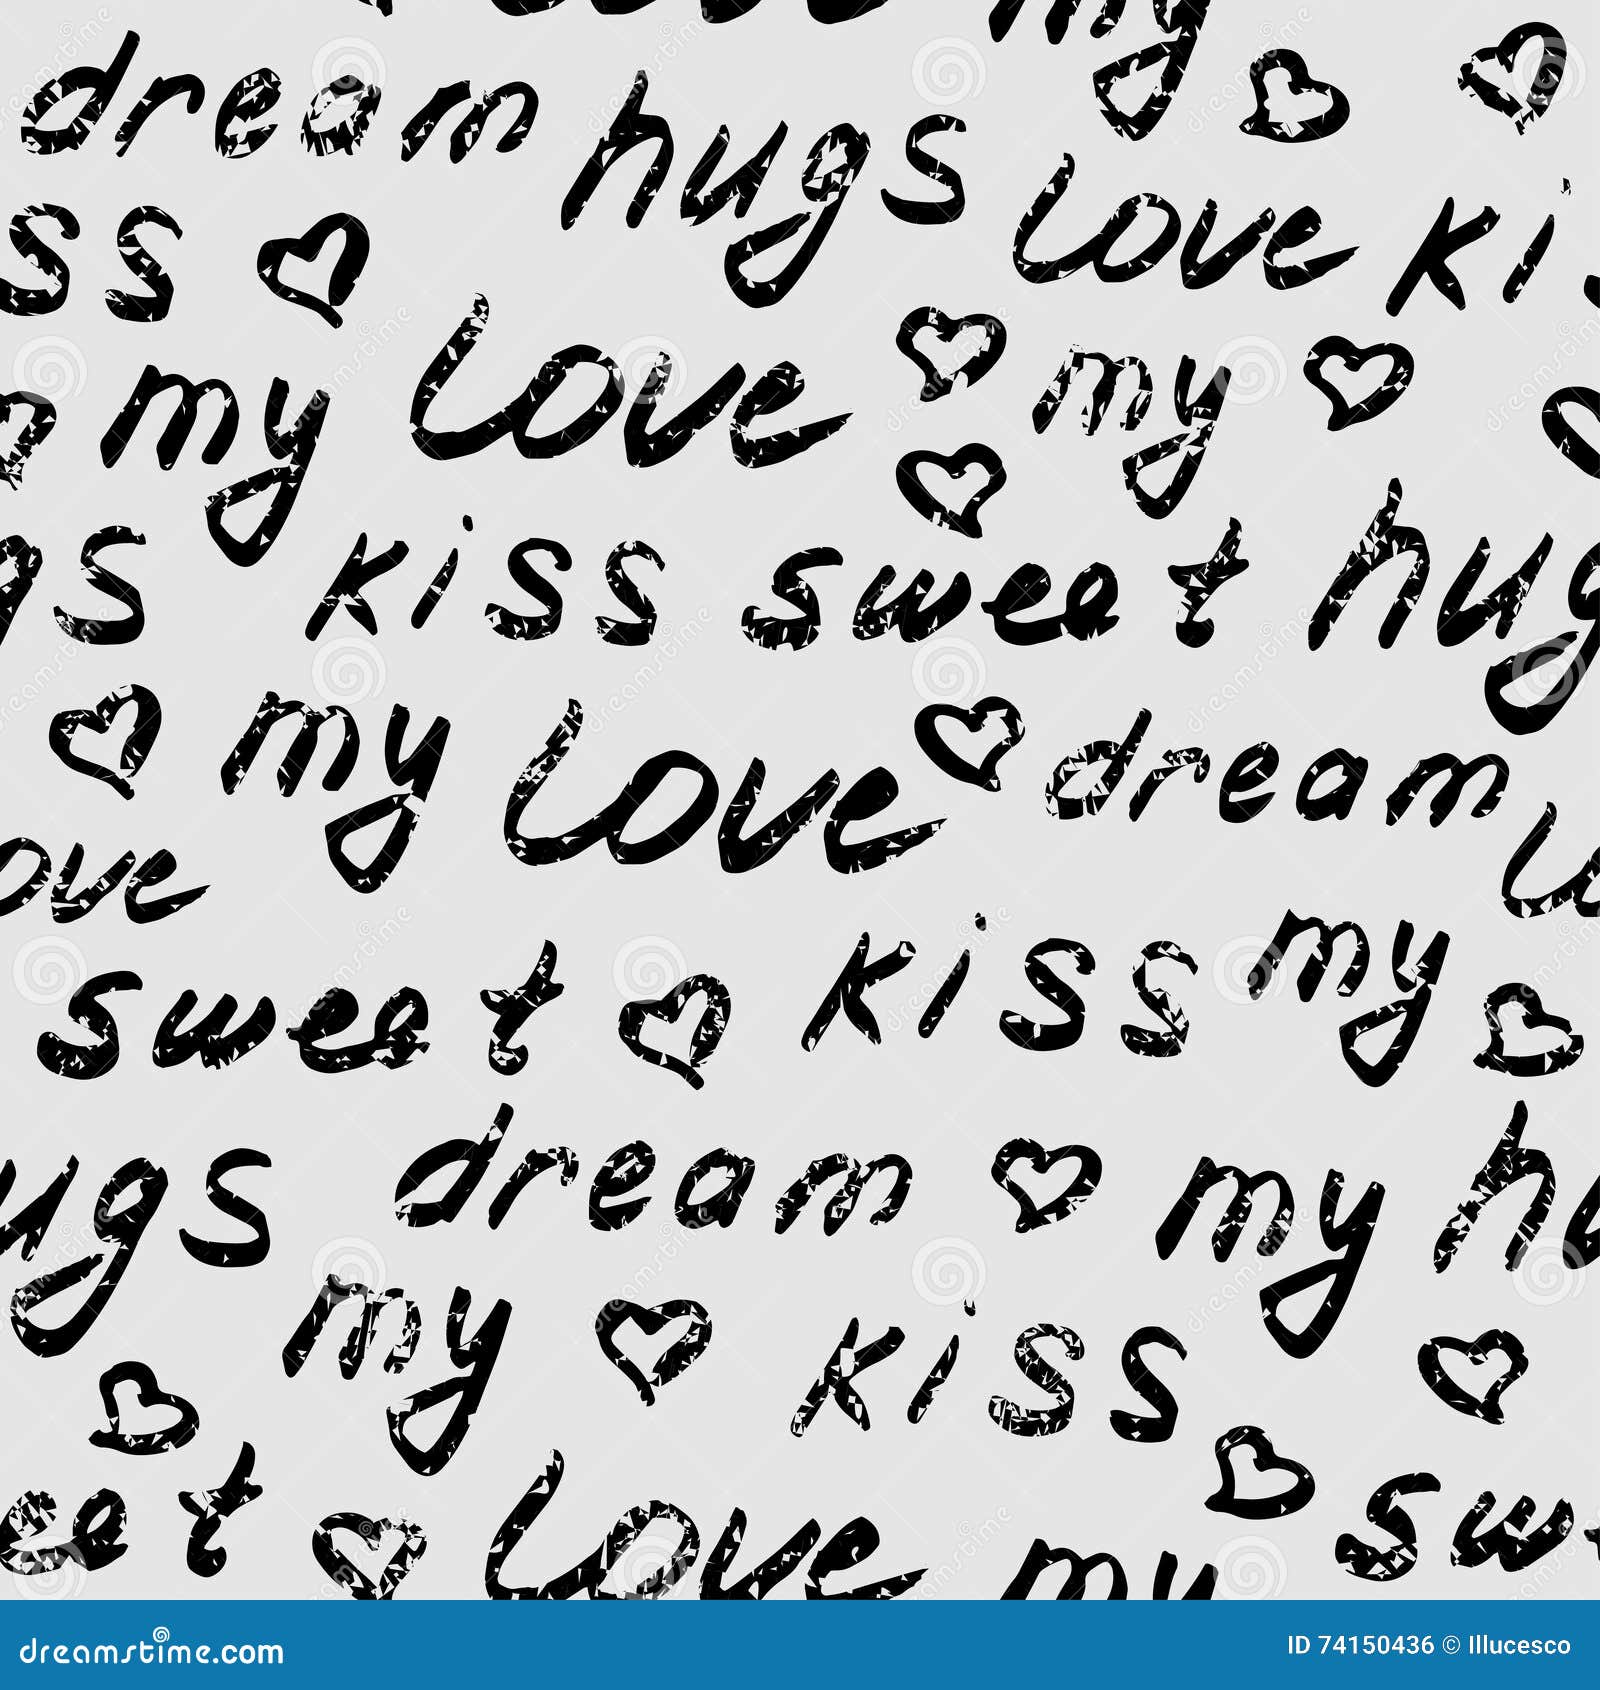 my
dream hugs
love ki
ss
my love my
gs kiss sweet hug
my love dream
ove lo
sweet kiss my
ugs dream my hu
my kiss
eet love my sw
dreamstime.com ID 74150436 © Illucesco